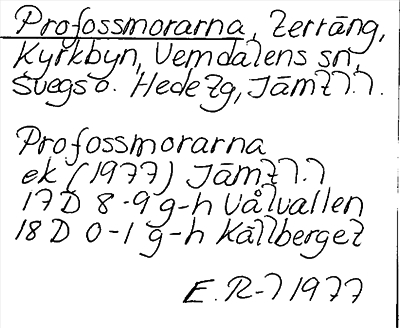 Profossmorarna, terräng,
Kyrkbyn, Vemdalens sn,
Svegs o. Hede tg, Jämtl.l.
Profossmorarna
ek (1977) Jämtl.l.
17D 8-9 g-h Vålvallen
18D 0-1 g-h Källberget
E. R-l 1977